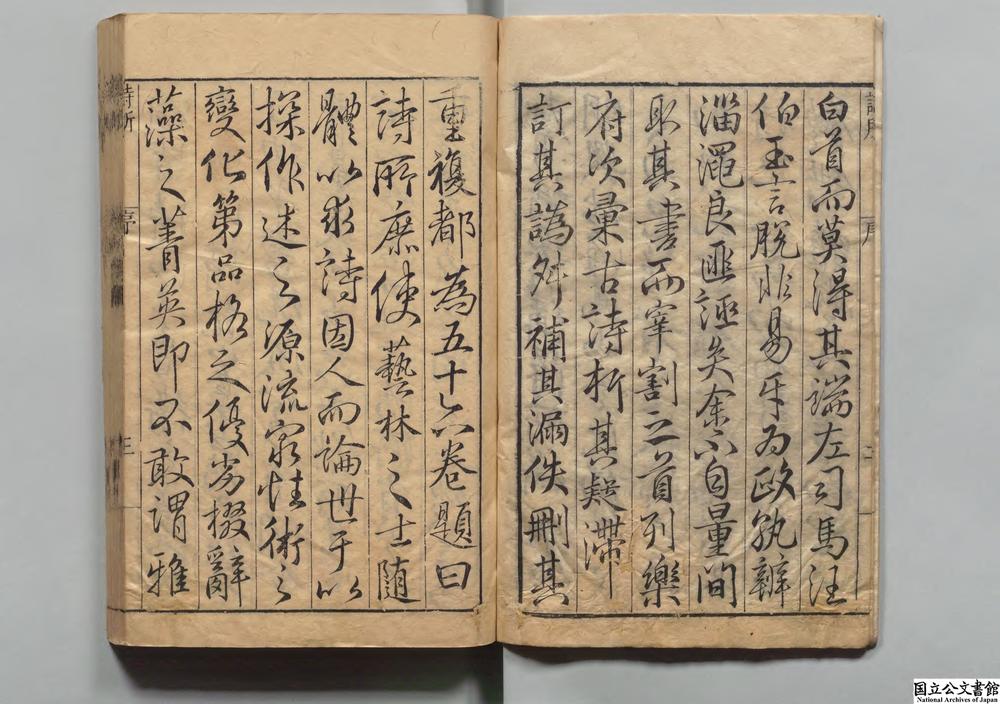 白首而莫得其端左司馬汪
伯玉言脫非易牙為政孰辨
淄澠良匪誣矣余不自量簡
取其書而宰割之首列樂
府次彙古詩析其疑滯
訂其譌舛補其漏佚刪其
重複都為五十六卷題曰
詩所庶使藝林之士隨
體以求詩因人而論世于以
探作述之源流窮性術之
變化第品格之優劣掇辭
藻之菁英即不敢謂雅
詩所
序
三
国立公文書館
National Archives of Japan